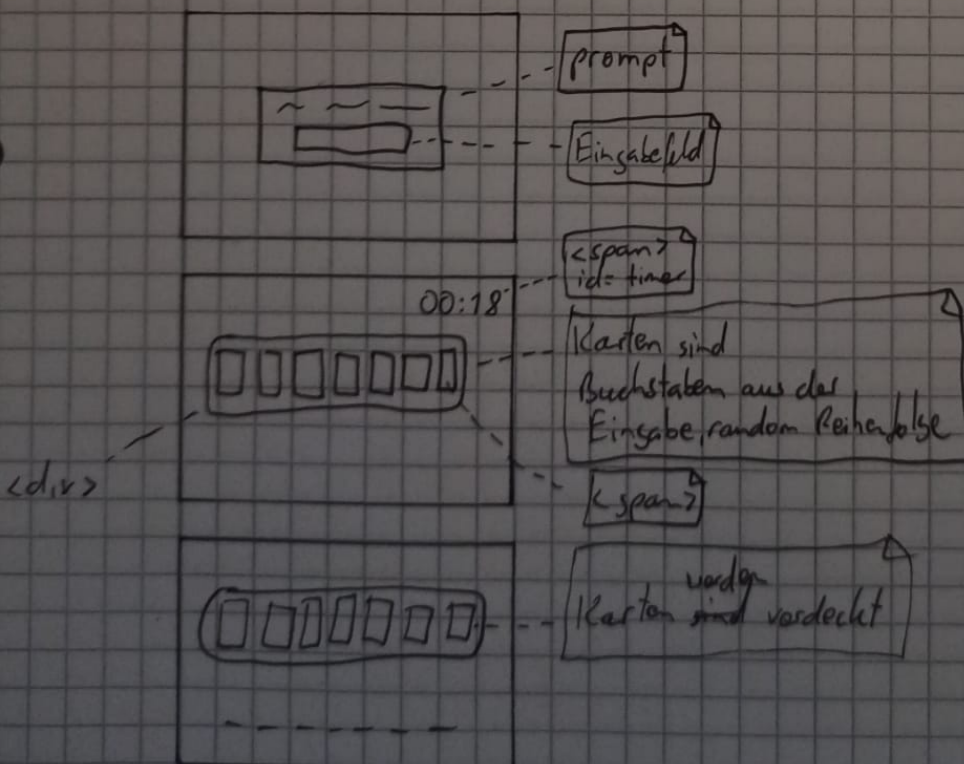 prompt
Eingabefeld
<span>
id= timer
00:18
Karten sind
Buchstaben aus der
Eingabe, random Reihenfolge
<div>
<span>
werden
Karten sind verdeckt